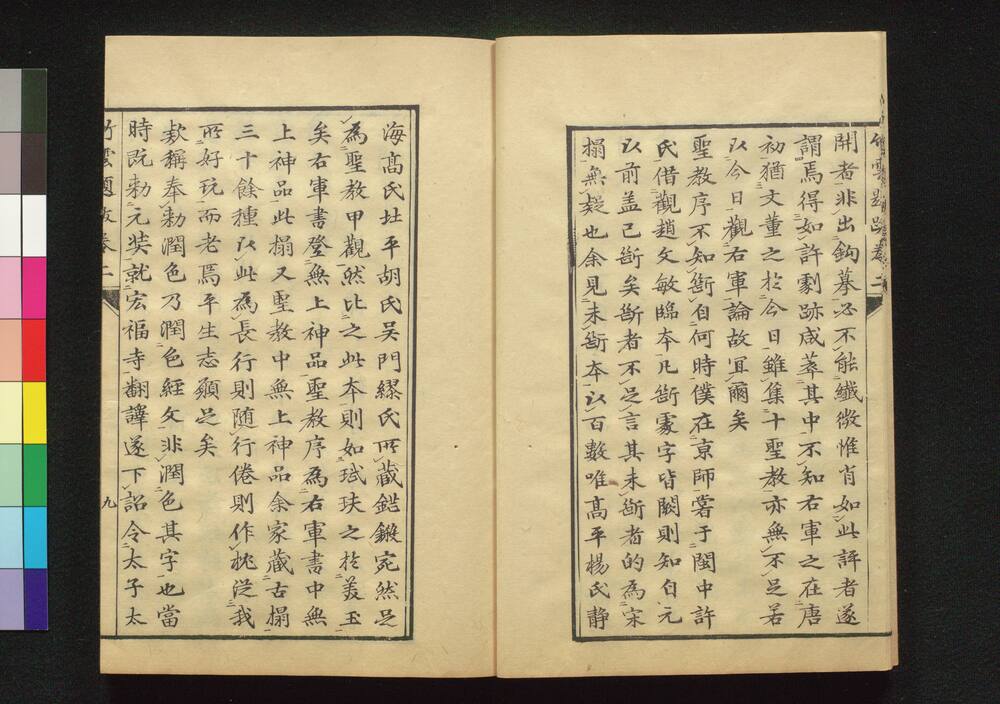 竹雲題跋卷二
開者非出鈎摹必不能纖微惟肖如此評者遂
謂焉得如許劇跡咸萃其中不知右軍之在唐
初猶文董之於今日雖集十聖教亦無不足若
以今日觀右軍論故宜爾矣
聖教序不知斷自何時僕在京師嘗于閩中許
氏借觀趙文敏臨本凡斷處字皆闕則知自元
以前盖已斷矣斷者不足言其未斷者的為宋
搨無疑也余見未斷本以百數唯高平楊氏静
海高氏北平胡氏吴門繆氏所藏鋩鍛宛然足
為聖教甲觀然比之此本則如珷玞之於美玉
矣右軍書登無上神品聖教序為右軍書中無
上神品此搨又聖教中無上神品余家藏古搨
三十餘種以此為長行則随行倦則作枕從我
所好玩而老焉平生志願足矣
款稱奉勅潤色乃潤色經文非潤色其字也當
時既勅元奘就宏福寺翻譯遂下詔令太子太
竹雲題跋卷二
九